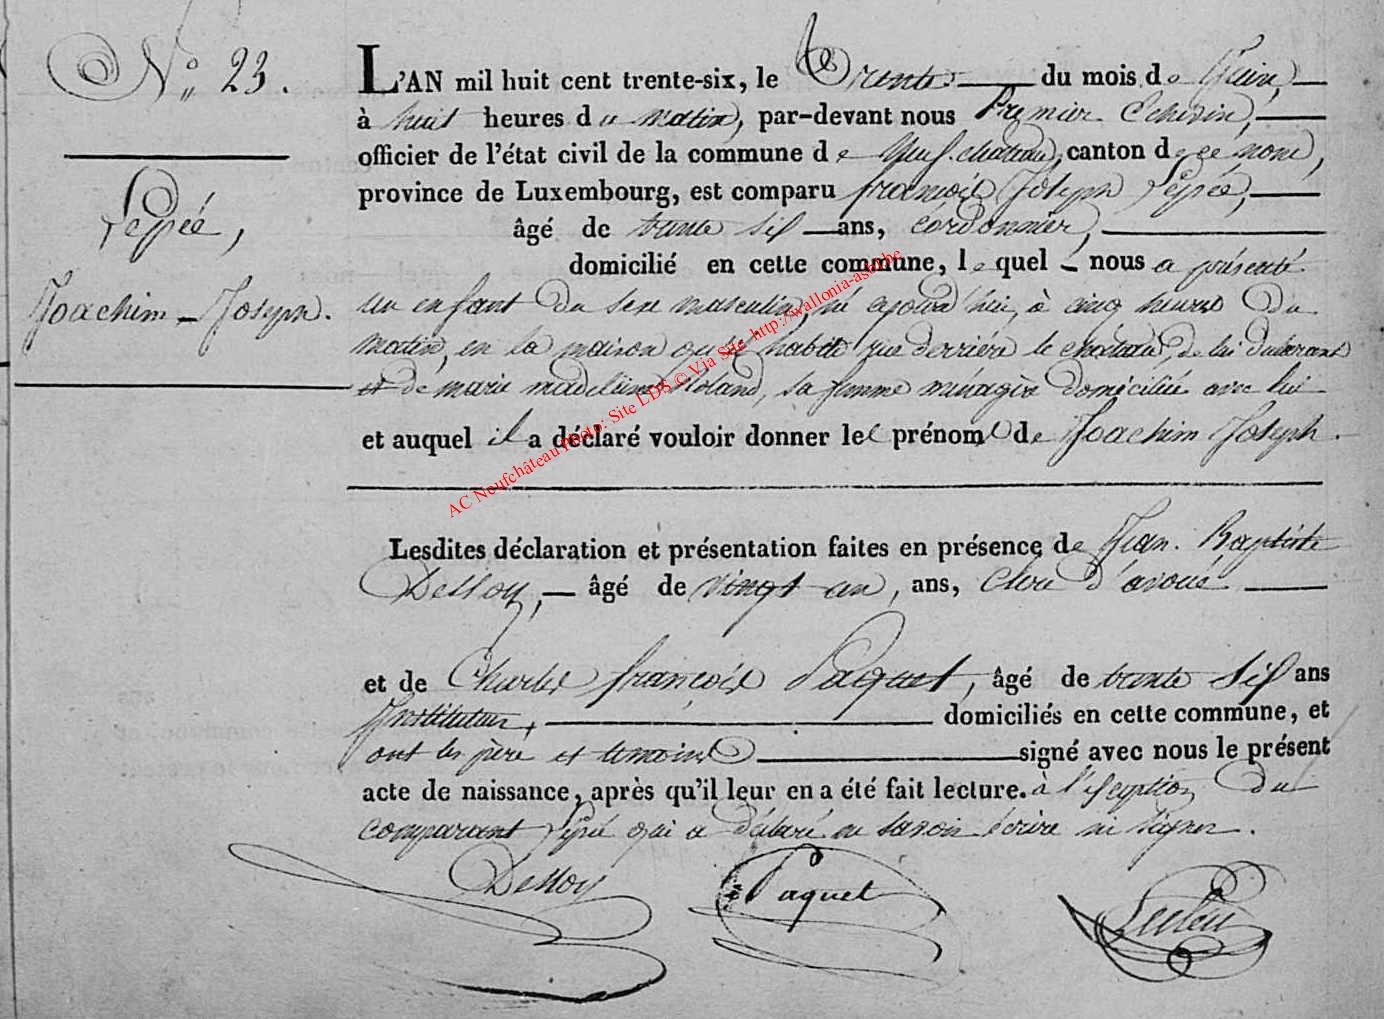 N° 23.
L'AN mil huit cent trente-six, le trente du mois de Juin,
à huit heures du matin, par-devant nous Premier Echevin,
officier de l'état civil de la commune de Neufchateau, canton de ce nom,
province de Luxembourg, est comparu françois Joseph Pepée,
âgé de trente six ans, cordonnier,
domicilié en cette commune, lequel nous a présenté
un enfant du sexe masculin, né ajourd'hui, à cinq heures du
matin, en la maison qu'il habite rue derrière le chateau, de lui déclarant
et de marie madelaine Roland, sa femme ménagère domiciliée avec lui
et auquel il a déclaré vouloir donner les prénoms de Joachim Joseph.
Pepée,
Joachim-Joseph.
Lesdites déclaration et présentation faites en présence de Jean-Baptiste
Dessoy, âgé de vingt un, ans, clerc d'avoué
et de Charles françois Paquet, âgé de trente six ans
Instituteur, domiciliés en cette commune, et
ont les père et témoins signé avec nous le présent
acte de naissance, après qu'il leur en a été fait lecture. à l'exception du
comparant Pepée qui a déclaré ne savoir écrire ni signer.
Dessoy
Paquet
AC Neufchâteau Photo: Site LDS © Via Site http://wallonia-asbl.be